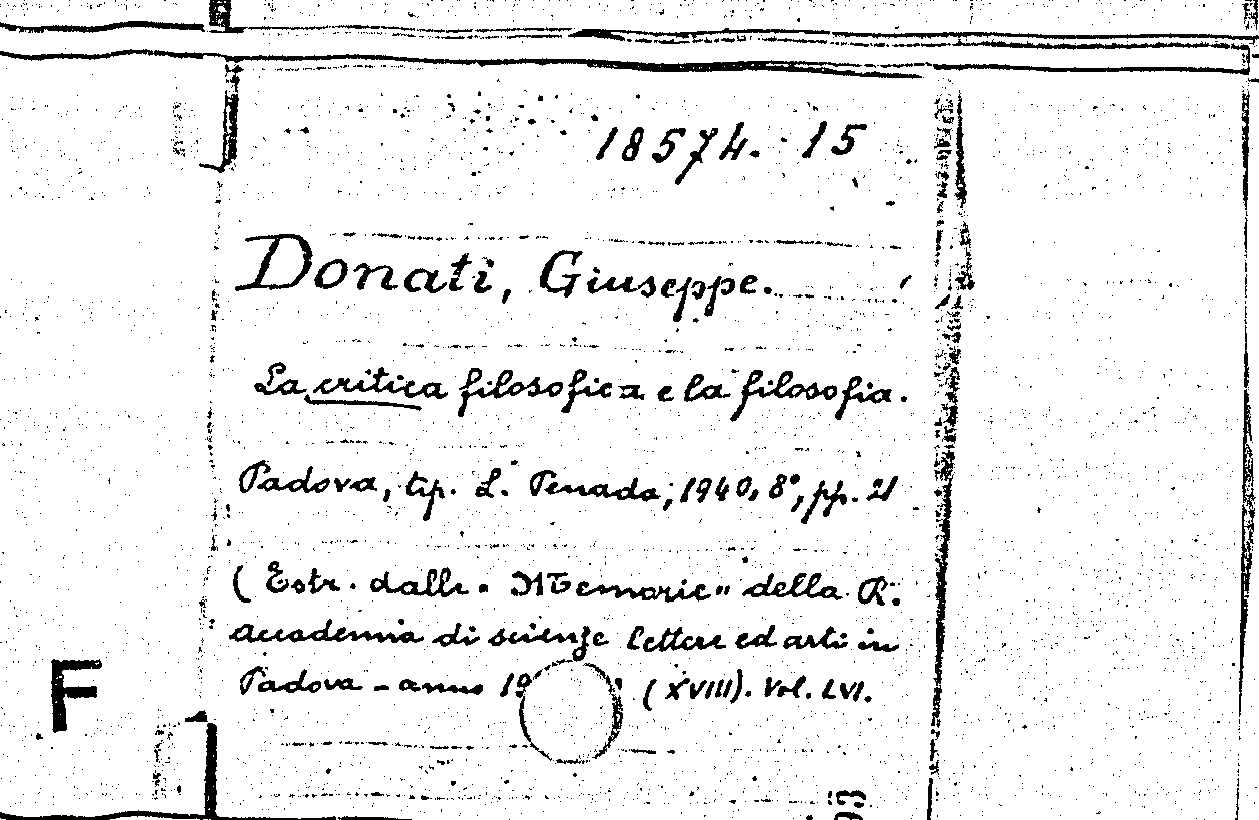 18574. 15
Donati, Giuseppe.
La critica filosofica e la filosofia.
Padova, tip. L. Penada, 1940, 8°, pp. 21
(Estr. dalle "Memorie" della R.
accademia di scienze lettere ed arti in
Padova - anno 19 (XVIII). Vol. LVI.
F